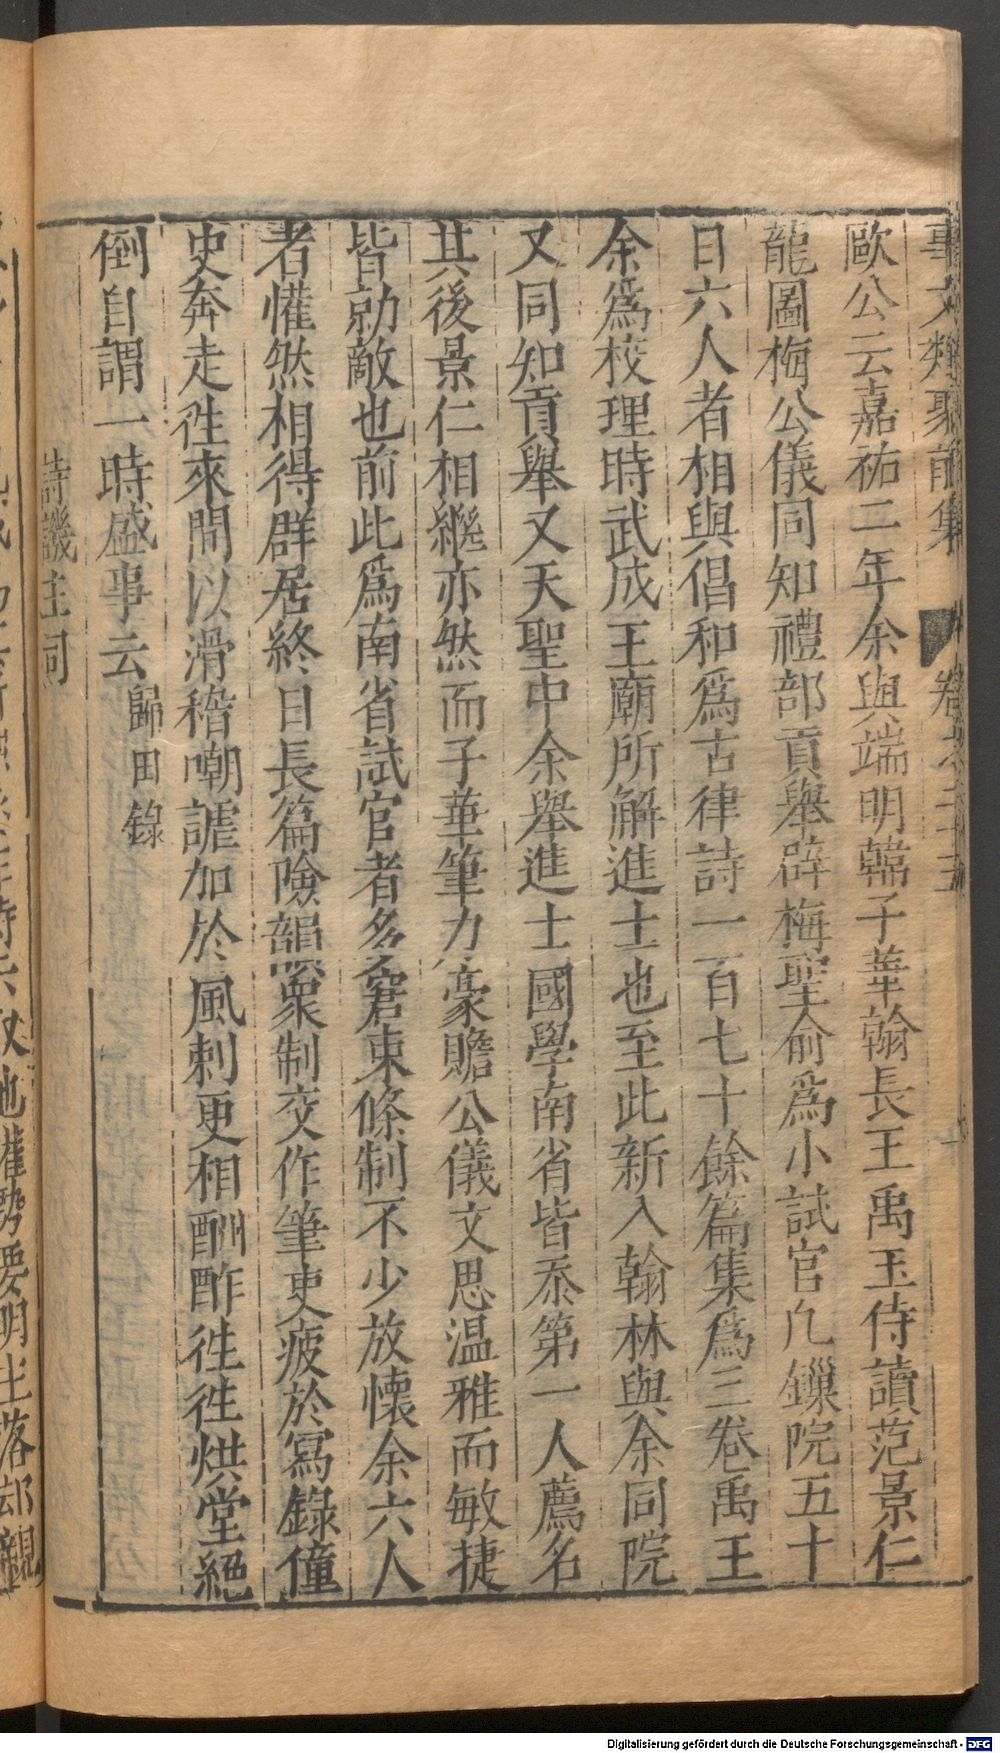 事文類聚前集 卷之二十五
歐公云嘉祐二年余與端明韓子華翰長王禹玉侍讀范景仁
龍圖梅公儀同知禮部貢舉辟梅聖俞爲小試官凢鏁院五十
日六人者相與倡和爲古律詩一百七十餘篇集爲三卷禹玉
余爲校理時武成王廟所解進士也至此新入翰林與余同院
又同知貢舉又天聖中余舉進士國學南省皆忝第一人薦名
其後景仁相繼亦然而子華筆力豪贍公儀文思温雅而敏捷
皆勍敵也前此爲南省試官者多窘束條制不少放懷余六人
者懽然相得群居終日長篇險韻衆制交作筆吏疲於寫錄僮
史奔走徃來間以滑稽嘲謔加於風刺更相酬酢徃徃烘堂絕
倒自謂一時盛事云歸田錄
詩譏主司
Digitalisierung gefördert durch die Deutsche Forschungsgemeinschaft - DFG